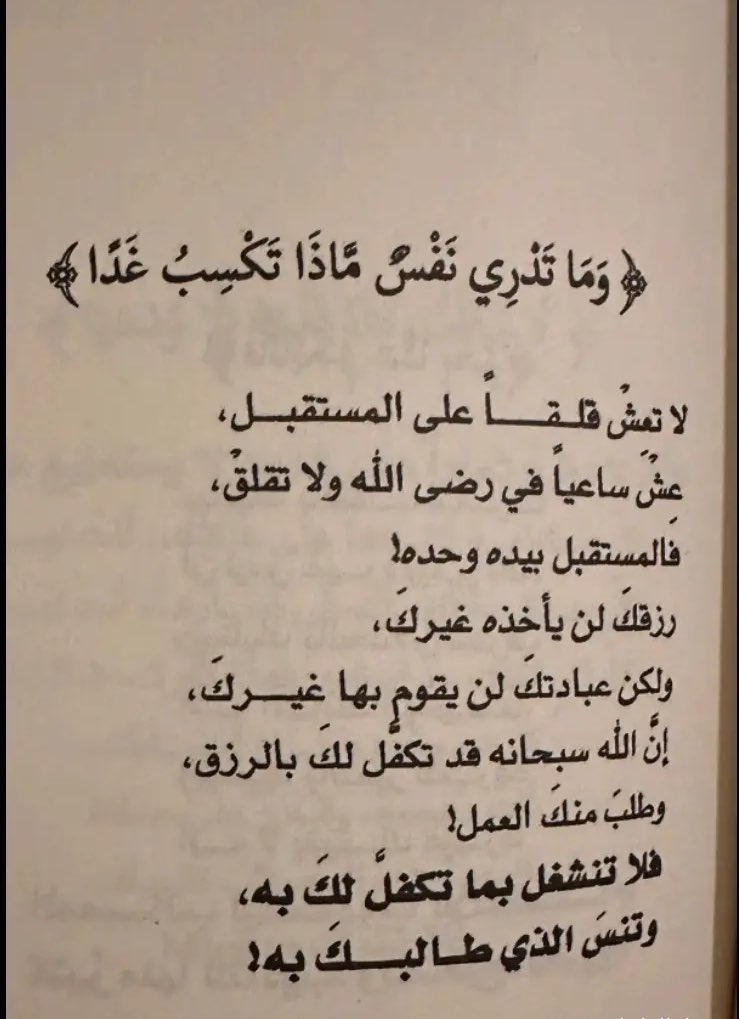 ﴿وَمَا تَدْرِي نَفْسٌ مَّاذَا تَكْسِبُ غَدًا﴾
لا تعِشْ قلـقـــاً على المستقبـــل،
عِشْ ساعياً في رضى الله ولا تقلقْ،
فَالمستقبل بيده وحده!
رزقكَ لن يأخذه غيركَ،
ولكن عبادتكَ لن يقوم بها غيـــركَ،
إنَّ الله سبحانه قد تكفَّل لكَ بالرزق،
وطلبَ منكَ العمل!
فلا تنشغل بما تكفلَّ لكَ به،
وتنسَ الذي طـالبـــكَ به!